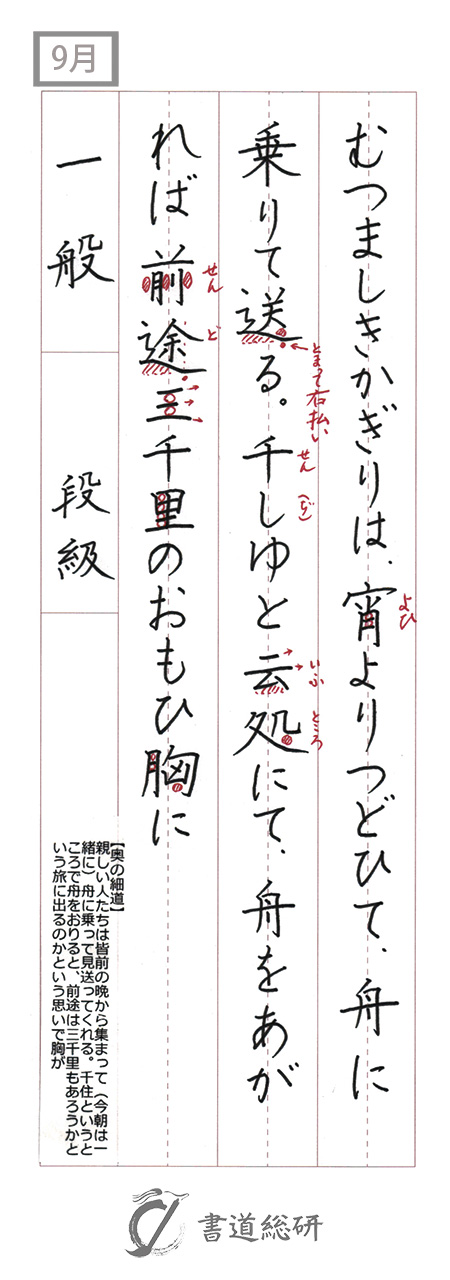 9月
むつましきかぎりは、宵よりつどひて、舟に
よひ
乗りて送る。千しゆと云処にて、舟をあが
とまって右払い
せん
(じ)
いふ
ところ
れば前途三千里のおもひ胸に
せん
ど
一般
段級
【奥の細道】
親しい人たちは皆前の晩から集まって（今朝は一
緒に）舟に乗って見送ってくれる。千住というと
ころで舟をおりると、前途は三千里もあろうかと
いう旅に出るのかという思いで胸が
書道総研